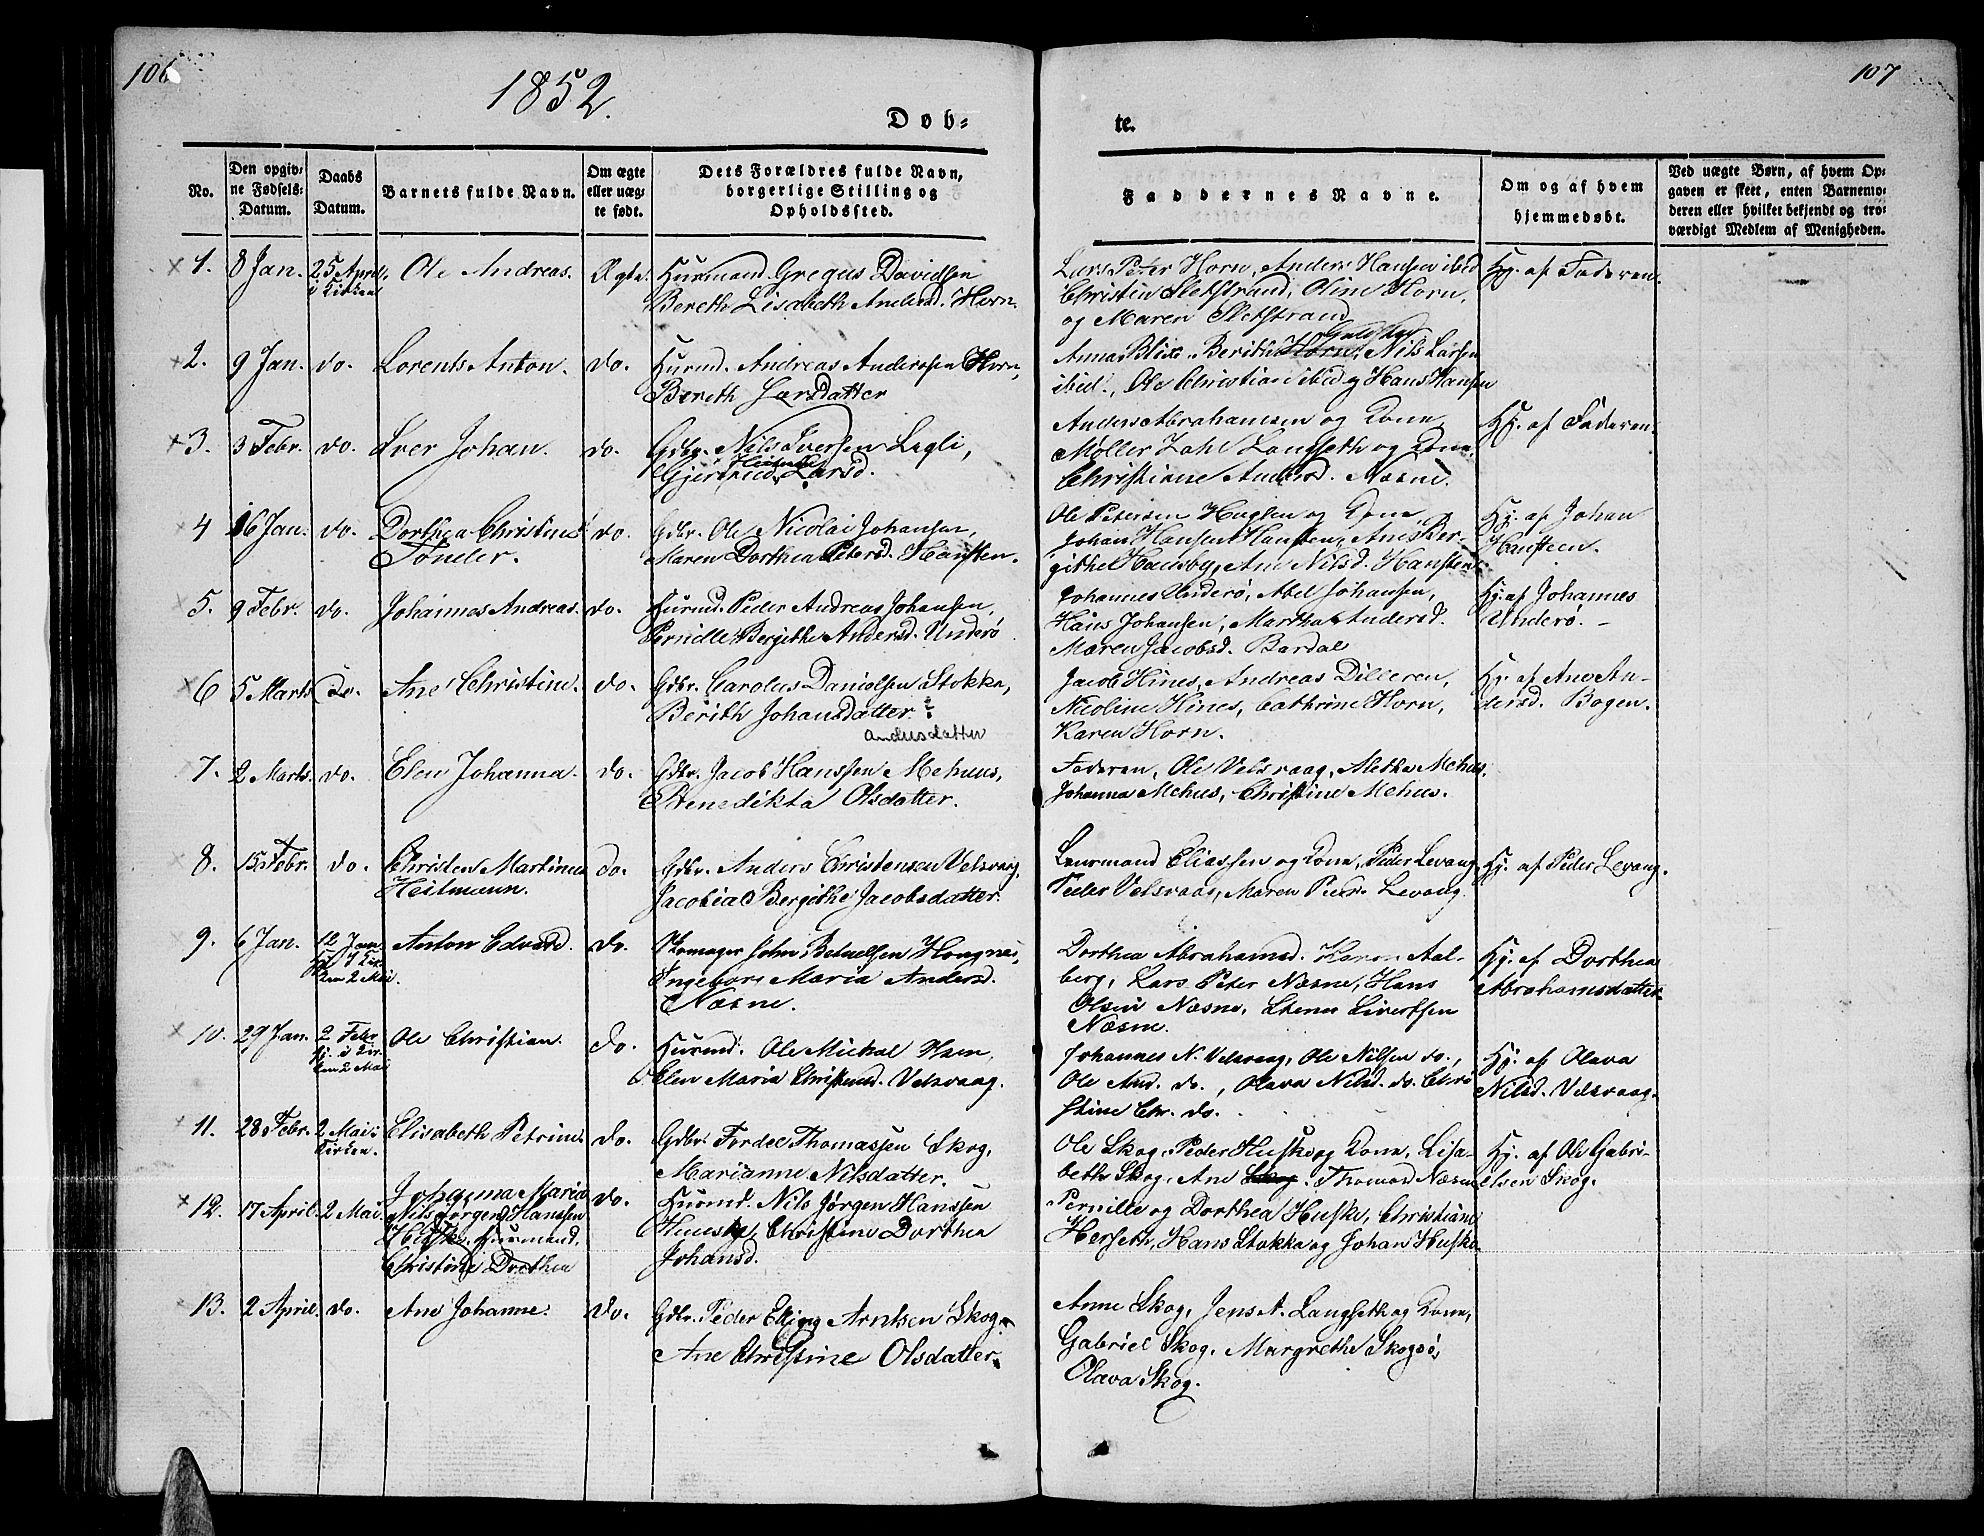 106
107
1852.
Döb-
te.
No.
Den opgiv-
ne Fødsels-
Datum.
Daabs
Datum.
Barnets fulde Navn.
Om ægte
eller uæg-
te født.
Dets Forældres fulde Navn,
borgerlige Stilling og
Opholdssted.
Faddernes Navne.
Om og af hvem
hjemmedøbt.
Ved uægte Børn, af hvem Op-
gaven er skeet, enten Barnemo-
deren eller hvilket bekjendt og tro-
værdigt Medlem af Menigheden.
1. 8 Jan. 25 April i Kirken Ole Andreas. Ægte.
Huusmand Gregus Davidsen
Bereth Lisabeth Andersd. Horn.
Lars Peter Horn, Anders Hansen ibid
Christin Sletstrand, Oline Horn,
og Maren Sletstrand
Hj. af Faderen.
2. 9 Jan. do. Lorents Anton. do.
Huusmd. Andreas Andersen Horn,
Bereth Larsdatter
Anna Blix, Berithe Horn, Nils Larsen
ibid., Ole Christian ibid og Hans Hansen
3. 3 Febr. do. Iver Johan. do.
Gdbr. Nils Iversen Legli,
Gjertrud Larsd.
Anders Abrahamsen og Kone
Møller Zahl Langseth og Kone,
Christiane Andersd. Næsne.
Hj. af Faderen.
4 16 Jan. do. Dorthea Christine
Tønder. do.
Gdbr. Ole Nicolai Johansen,
Maren Dorthea Petersd. Hansteen.
Ole Petersen Huglen og Kone
Johan Hansen Hansteen, Ane Ber-
githe Huusby, Ane Nilsd. Hansteen
Hj. af Johan
Hansteen.
5. 9 Febr. do. Johannes Andreas. do.
Huusmd. Peder Andreas Johansen,
Pernille Bergithe Andersd. Underø
Johannes Underø, Abel Johansen,
Hans Johansen, Martha Andersd.
Maren Jacobsd. Bardal
Hj. af Johannes
Underø.
6 5 Marts do. Ane Christine. do.
Gdbr. Carolus Danielsen Stokka,
Berith Johansdatter ?
andersdatter
Jacob Hines, Andreas Dilleren,
Nicoline Hines, Cathrine Horn,
Karen Horn.
Hj. af Ane An-
dersd. Bogen.
7. 2 Marts. do. Elen Johanna. do.
Gdbr. Jacob Hanssen Mehuus,
Benedikta Olsdatter.
Faderen, Ole Velsvaag, Methe Mehus,
Johanna Mehus, Christine Mehus.
8. 15 Febr. do. Christen Martinus
Heitmann. do.
Gdbr. Anders Christensen Velsvaag,
Jacobia Bergithe Jacobsdatter.
Lensmand Eliassen og Kone, Peder Levang,
Peder Velsvaag, Maren Pedersd. Levang.
Hj. af Peder Levang.
9. 6 Jan. 12 Jan.
Hj. i Kir-
ken 2 Mai. Anton Edvard. do.
Skomager John Betuelsen Hougnes,
Ingebor Maria Andersd.
Næsne.
Dorthea Abrahamsd. Karen Aal-
berg, Lars Peter Næsne, Hans
Olsen Næsne, Stener Sivertsen
Næsne.
Hj. af Dorthea
Abrahamsdatter
10. 29 Jan. 2 Febr
Hj. i Kir-
ken 2 Mai Ole Christian. do.
Huusmd. Ole Michal Isen,
Elen Maria Christensd. Velsvaag.
Johannes N. Velsvaag, Ole Nilsen do.,
Ole And. do., Olava Nilsd. do. Chri-
stine Chr. do.
Hj. af Olava
Nilsd. Velsvaag.
11. 28 Febr. 2 Mai i
Kirken. Elisabeth Petrine. do.
Gdbr. Fordel Thomassen Skog,
Marianne Nilsdatter.
Ole Skog, Peder Huske og Kone, Lisa-
beth Skog, Ane Skog. Thomas Næsne
Hj. af Ole Gabri-
elsen Skog.
12. 17 April. 2 Mai. Johanna Maria
Nils Jørgen Hanssen
Huske, Huusmand,
Christine Dorthea do.
Huusmd. Nils Jørgen Hanssen
Huusby, Christine Dorthea
Johansd.
Pernille og Dorthea Huske, Christiane
Herseth, Hans Stokka og Johan Huske.
13. 2 April. do. Ane Johanne. do.
Gdbr. Peder Elling Arntsen Skog,
Ane Christine Olsdatter.
Anne Skog, Jens A. Langseth og Kone,
Gabriel Skog, Margrethe Skogsø,
Olava Skog.